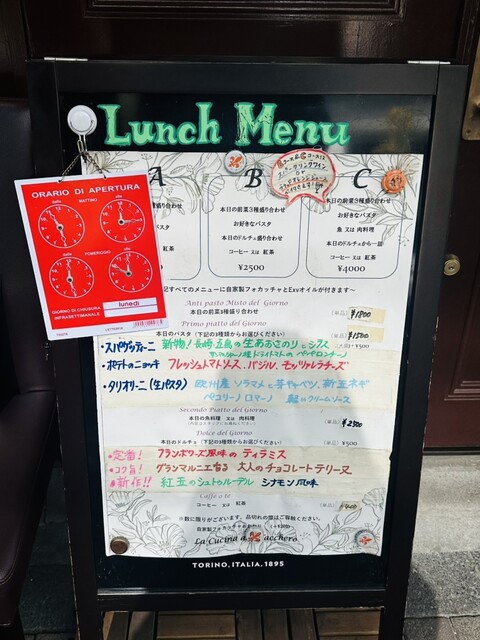 Lunch Menu
ORARIO DI APERTURA
dalle MATTINO alle
dalle POMERIGGIO alle
GIORNO DI CHIUSURA INFRASETTIMANALE
lunedì
A
B
C
本日の前菜3種盛り合わせ
お好きなパスタ
本日のドルチェ盛り合わせ
コーヒー 又は 紅茶
¥2500
本日の前菜3種盛り合わせ
お好きなパスタ
魚 又は 肉料理
本日のドルチェから一皿
コーヒー 又は 紅茶
¥4000
記すべてのメニューに自家製フォカッチャとExvオイルが付きます〜
Anti pasto Misto del Giorno
本日の前菜3種盛り合わせ (単品) ¥1800
Primo piatto del Giorno
本日のパスタ (下記の3種類からお選びください) (単品) ¥1500
・スパゲッティーニ 新物!長崎・五島の生あおさのりとシラス
ドライトマトの ペペロンチーノ
・ポテトのニョッキ フレッシュトマトソース、バジル、モッツァレラチーズ
・タリオリーニ(生パスタ) 欧州産ソラマメと芽キャベツ、新玉ネギ
ペコリーノロマーノ 鶏のクリームソース
Secondo Piatto del Giorno
本日の魚料理 又は 肉料理 (単品) ¥2300
Dolce del Giorno
本日のドルチェ (下記の3種類からお選びください) (単品) ¥500
・定番! フランボワーズ風味の ティラミス
・コク旨! グランマルニエ香る 大人のチョコレートテリーヌ
・新作!! 紅玉のシュトゥルーデル シナモン風味
Caffe o te
コーヒー 又は 紅茶
※数に限りがございます。品切れの際はご容赦ください。
La Cucina d acchero
TORINO.ITALIA.1895